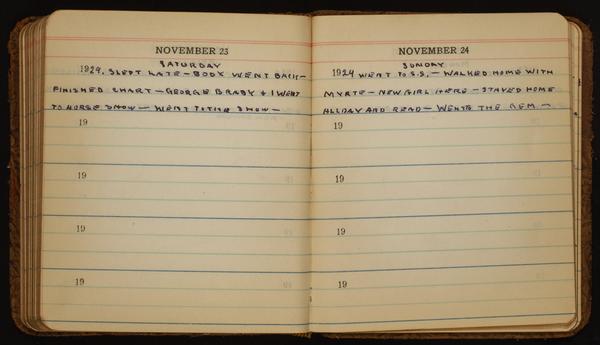 NOVEMBER 23
SATURDAY
1929. SLEPT LATE – BODY WENT BACK –
FINISHED CHART – GEORGE BRADY & I WENT
TO HORSE SHOW – WENT TO THE SHOW –
19
19
19
19
NOVEMBER 24
SUNDAY
1924 WENT TO S.S. – WALKED HOME WITH
MYRTE – NEW GIRL HERE – STAYED HOME
ALL DAY AND READ – WENT THE GEM –
19
19
19
19